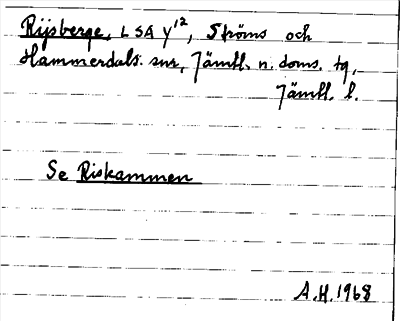 Rijsberge, LSA Y¹², Ströms och
Hammerdals snr, Jämtl. n. doms. tg,
Jämtl. l.
Se Riskammen
A.H. 1968